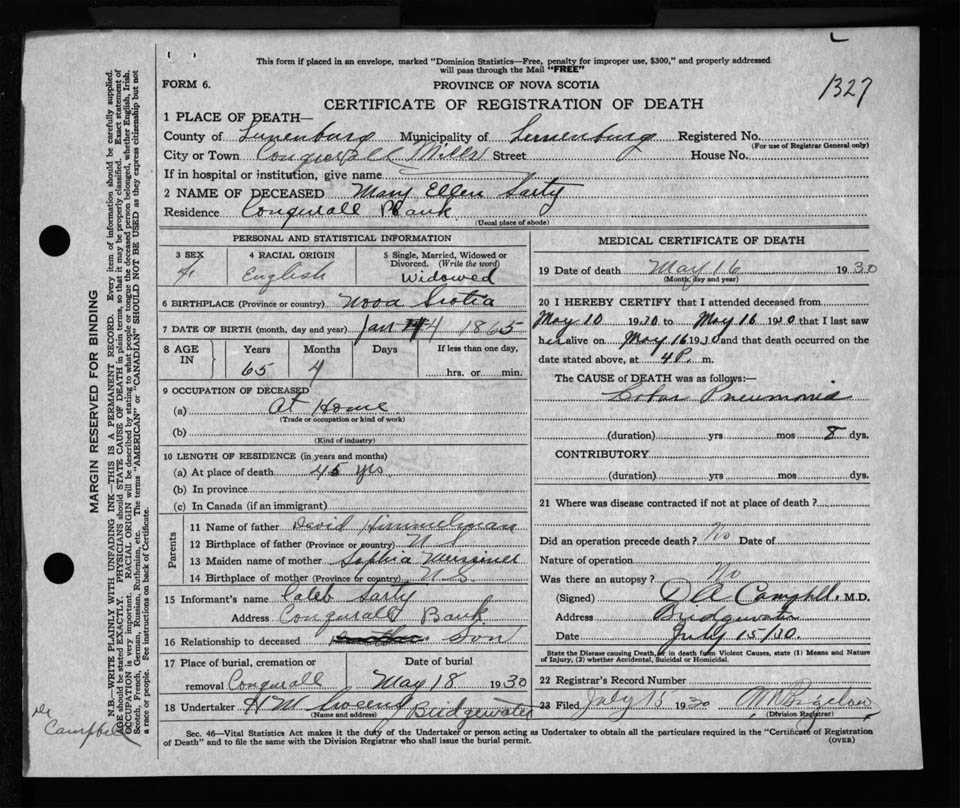 This form if placed in an envelope, marked "Dominion Statistics—Free, penalty for improper use, $300," and properly addressed
will pass through the Mail "FREE"
FORM 6.
PROVINCE OF NOVA SCOTIA
1327
CERTIFICATE OF REGISTRATION OF DEATH
1 PLACE OF DEATH—
County of Lunenburg Municipality of Lunenburg Registered No.
(For use of Registrar General only)
City or Town Conquerall Mills Street House No.
If in hospital or institution, give name
2 NAME OF DECEASED Mary Ellen Sarty
Residence Conquerall Bank
(Usual place of abode)
PERSONAL AND STATISTICAL INFORMATION
3 SEX
4 RACIAL ORIGIN English
5 Single, Married, Widowed or Divorced. (Write the word) Widowed
6 BIRTHPLACE (Province or country) Nova Scotia
7 DATE OF BIRTH (month, day and year) Jan 4 1865
8 AGE IN Years Months Days If less than one day,
65 4 hrs. or min.
9 OCCUPATION OF DECEASED
(a) At Home
(Trade or occupation or kind of work)
(b)
(Kind of industry)
10 LENGTH OF RESIDENCE (in years and months)
(a) At place of death 45 yrs
(b) In province
(c) In Canada (if an immigrant)
Parents
11 Name of father David Himmelman
12 Birthplace of father (Province or country) N S
13 Maiden name of mother Sophia
14 Birthplace of mother (Province or country) N S
15 Informant's name Caleb Sarty
Address Conquerall Bank
16 Relationship to deceased Son
17 Place of burial, cremation or removal Conquerall
Date of burial May 18 1930
18 Undertaker H W Bridgewater
(Name and address)
MEDICAL CERTIFICATE OF DEATH
19 Date of death May 16 1930
(Month, day and year)
20 I HEREBY CERTIFY that I attended deceased from
May 10 1930 to May 16 1930 that I last saw
her alive on May 16 1930 and that death occurred on the
date stated above, at 4 P. m.
The CAUSE of DEATH was as follows:—
Lobar Pneumonia
(duration) yrs mos 8 dys.
CONTRIBUTORY
(duration) yrs mos dys.
21 Where was disease contracted if not at place of death?
Did an operation precede death? No Date of
Nature of operation
Was there an autopsy? No
(Signed) Campbell M.D.
Address Bridgewater
Date July 15/30.
State the Disease causing Death, or in death from Violent Causes, state (1) Means and Nature
of Injury, (2) whether Accidental, Suicidal or Homicidal.
22 Registrar's Record Number
23 Filed July 15 1930 Bigelow
(Division Registrar)
Sec. 46—Vital Statistics Act makes it the duty of the Undertaker or person acting as Undertaker to obtain all the particulars required in the "Certificate of Registration
of Death" and to file the same with the Division Registrar who shall issue the burial permit.
(OVER)
MARGIN RESERVED FOR BINDING
N.B.—WRITE PLAINLY WITH UNFADING INK—THIS IS A PERMANENT RECORD. Every item of information should be carefully supplied.
AGE should be stated EXACTLY. PHYSICIANS should STATE CAUSE OF DEATH in plain terms, so that it may be properly classified. Exact statement of
OCCUPATION is very important. RACIAL ORIGIN will be described by stating to what people or tongue the deceased person belonged, whether English, Irish,
Scotch, French, German, Russian, Ruthenian, etc. The terms "AMERICAN" or "CANADIAN" SHOULD NOT BE USED as they express citizenship but not
a race or people. See instructions on back of Certificate.
Dr
Campbell